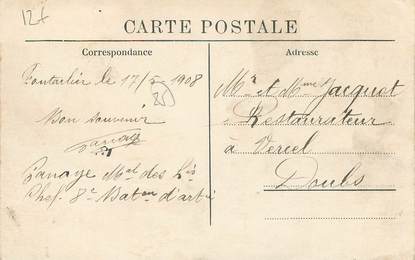 12f
CARTE POSTALE
Correspondance
Adresse
Pontarlier le 17/ 1908
Bon souvenir
Panaye
Panaye Mal des Lis
Chef 8e Baton d'artie
Mr et Mme Jacquot
Restaurateur
à Vercel
Doubs